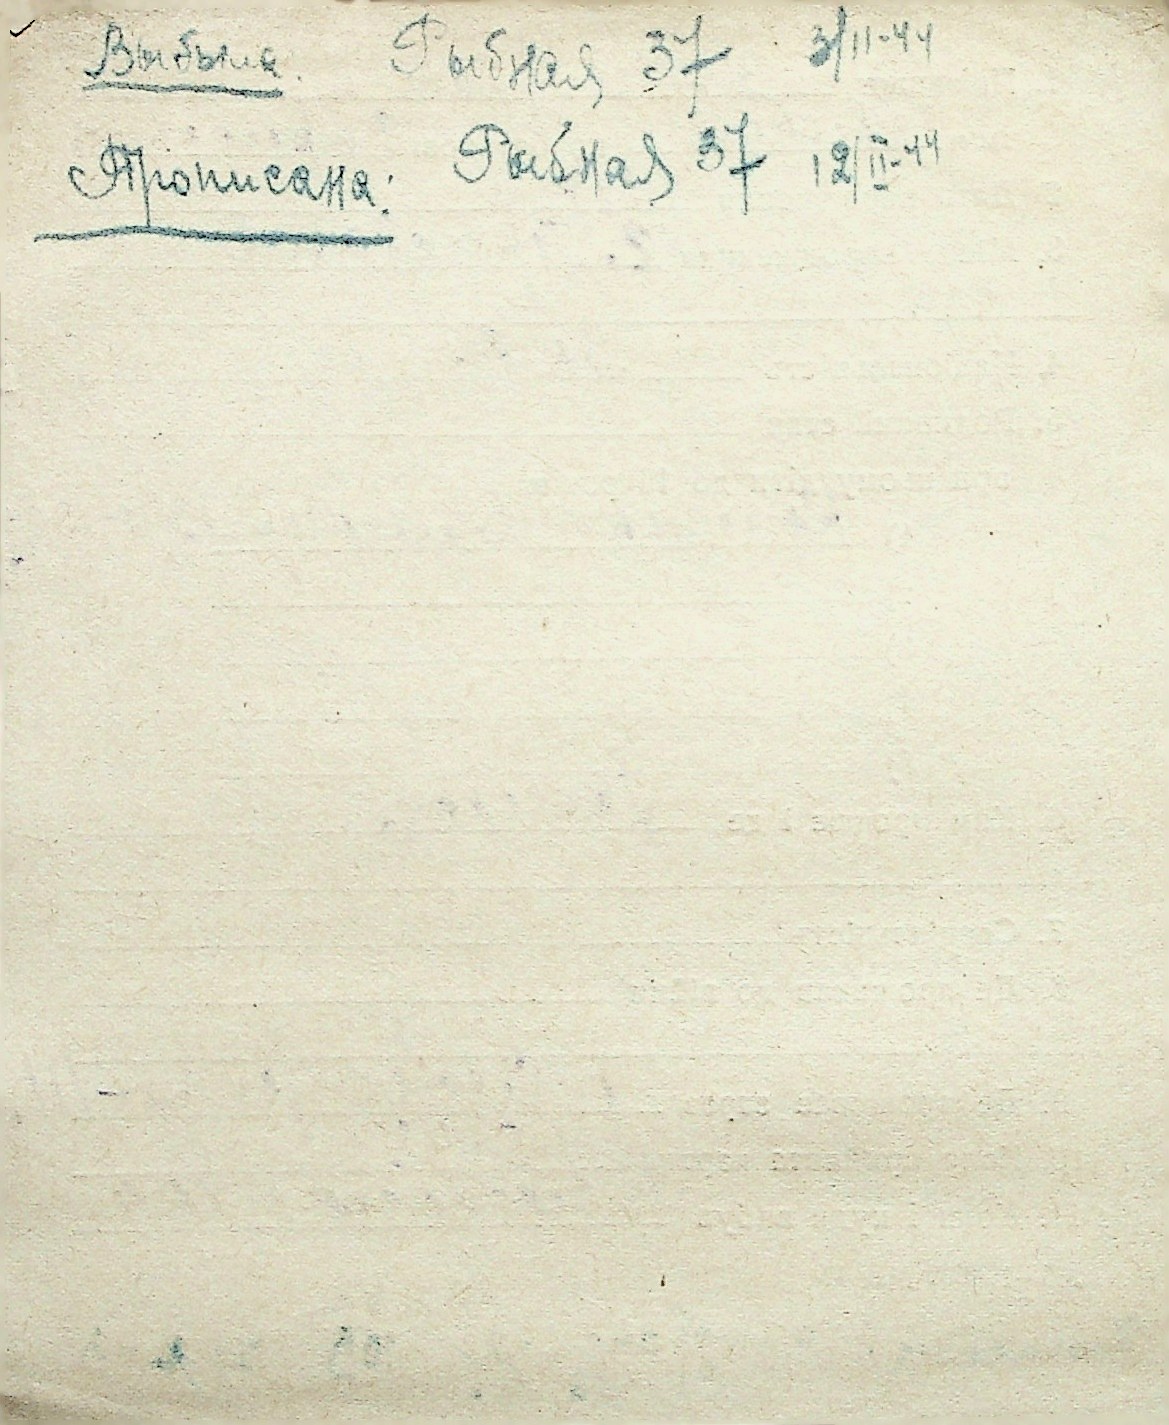 Выбыла. Рыбная 37 3/II-44
Прописана: Рыбная 37 12/II-44